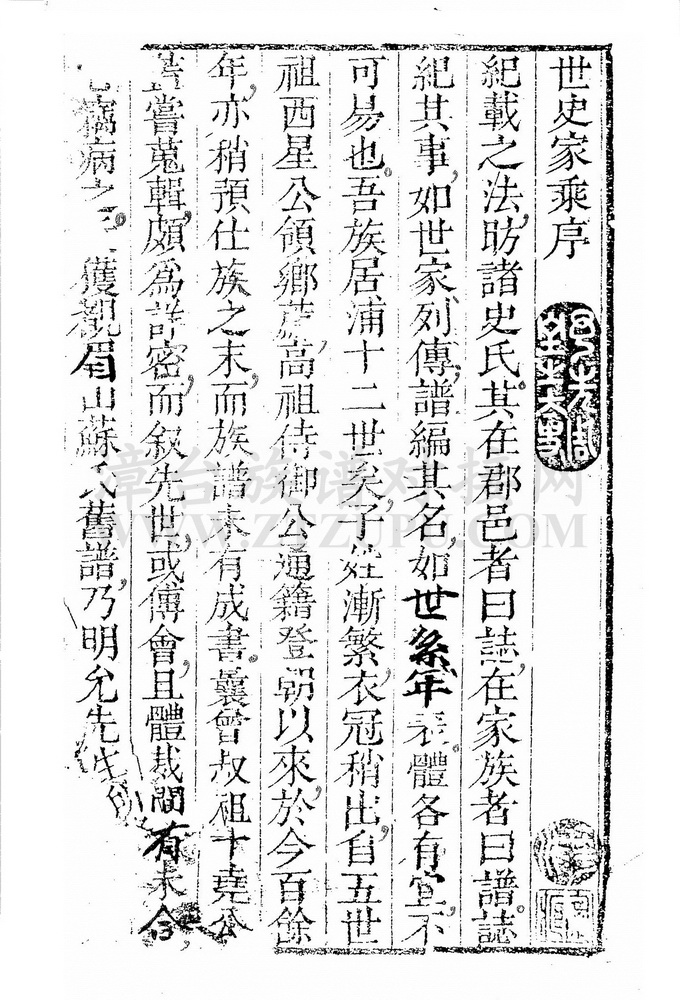 世史家乘序
紀載之法昉諸史氏其在郡邑者曰誌在家族者曰譜誌
紀其事如世家列傳譜編其名如世系年表體各有宜不
可易也吾族居浦十二世矣子姓漸繁衣冠稍出自五世
祖西星公領鄉薦高祖侍御公通籍登朝以來於今百餘
年亦稍預仕族之末而族譜未有成書曩曾叔祖十堯公
蓋嘗蒐輯頗為詳密而叙先世或傅會且體裁間有未合
竊病之獲觀眉山蘇氏舊譜乃明允先生
漳台族谱对接网
WWW.ZTZUPU.COM